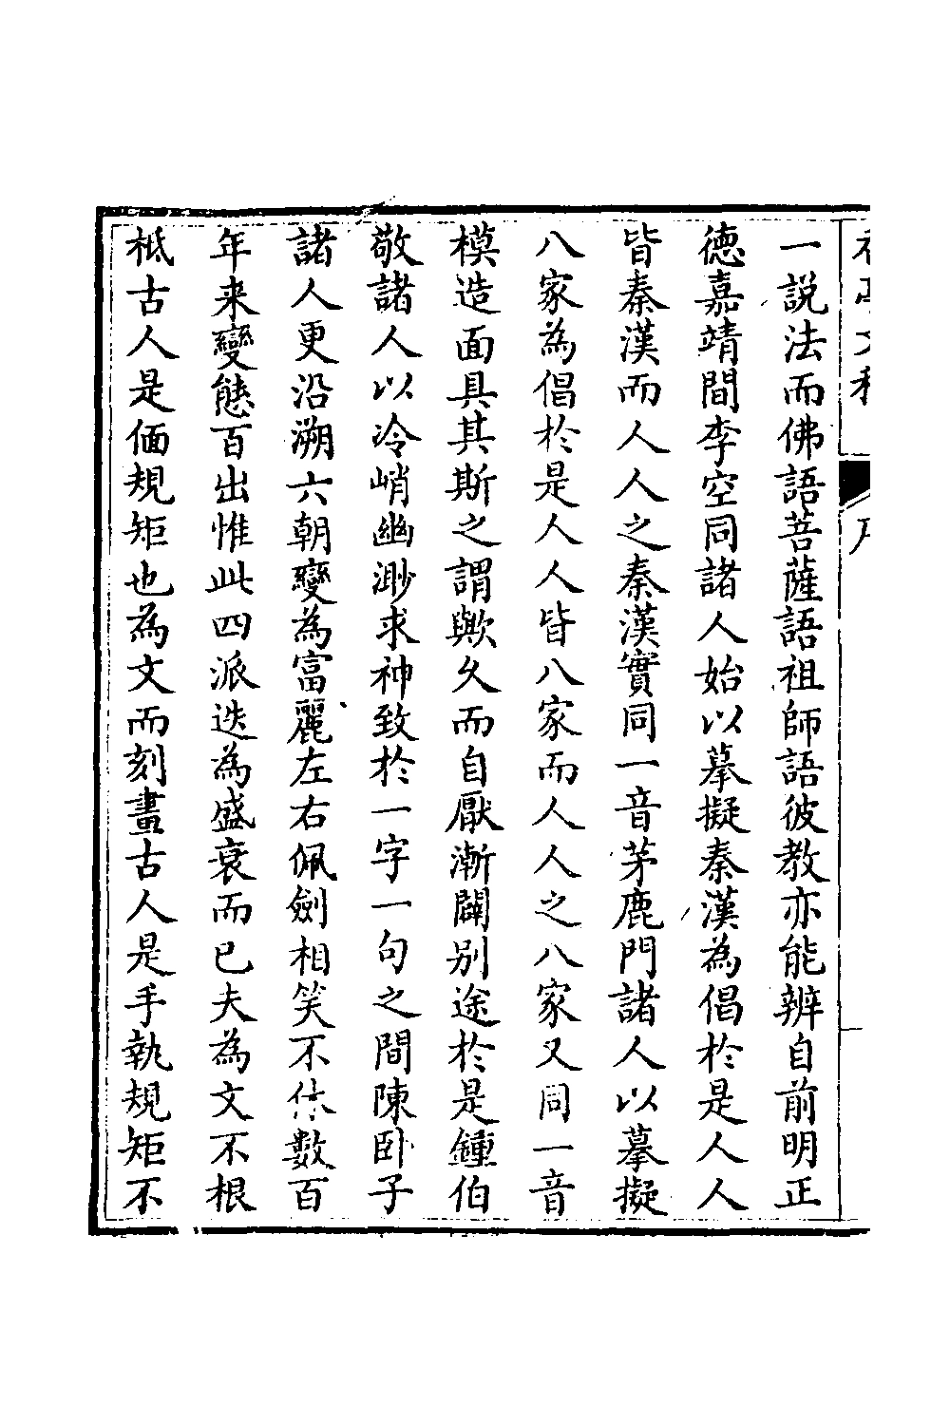 一説法而佛語菩薩語祖師語彼教亦能辨自前明正
徳嘉靖間李空同諸人始以摹擬秦漢為倡於是人人
皆秦漢而人人之秦漢實同一音茅鹿門諸人以摹擬
八家為倡於是人人皆八家而人人之八家又同一音
模造面具其斯之謂歟久而自厭漸闢别途於是鍾伯
敬諸人以冷峭幽渺求神致於一字一句之間陳卧子
諸人更沿溯六朝變為富麗左右佩劍相笑不休數百
年来變態百出惟此四派迭為盛衰而已夫為文不根
柢古人是偭規矩也為文而刻畫古人是手執規矩不